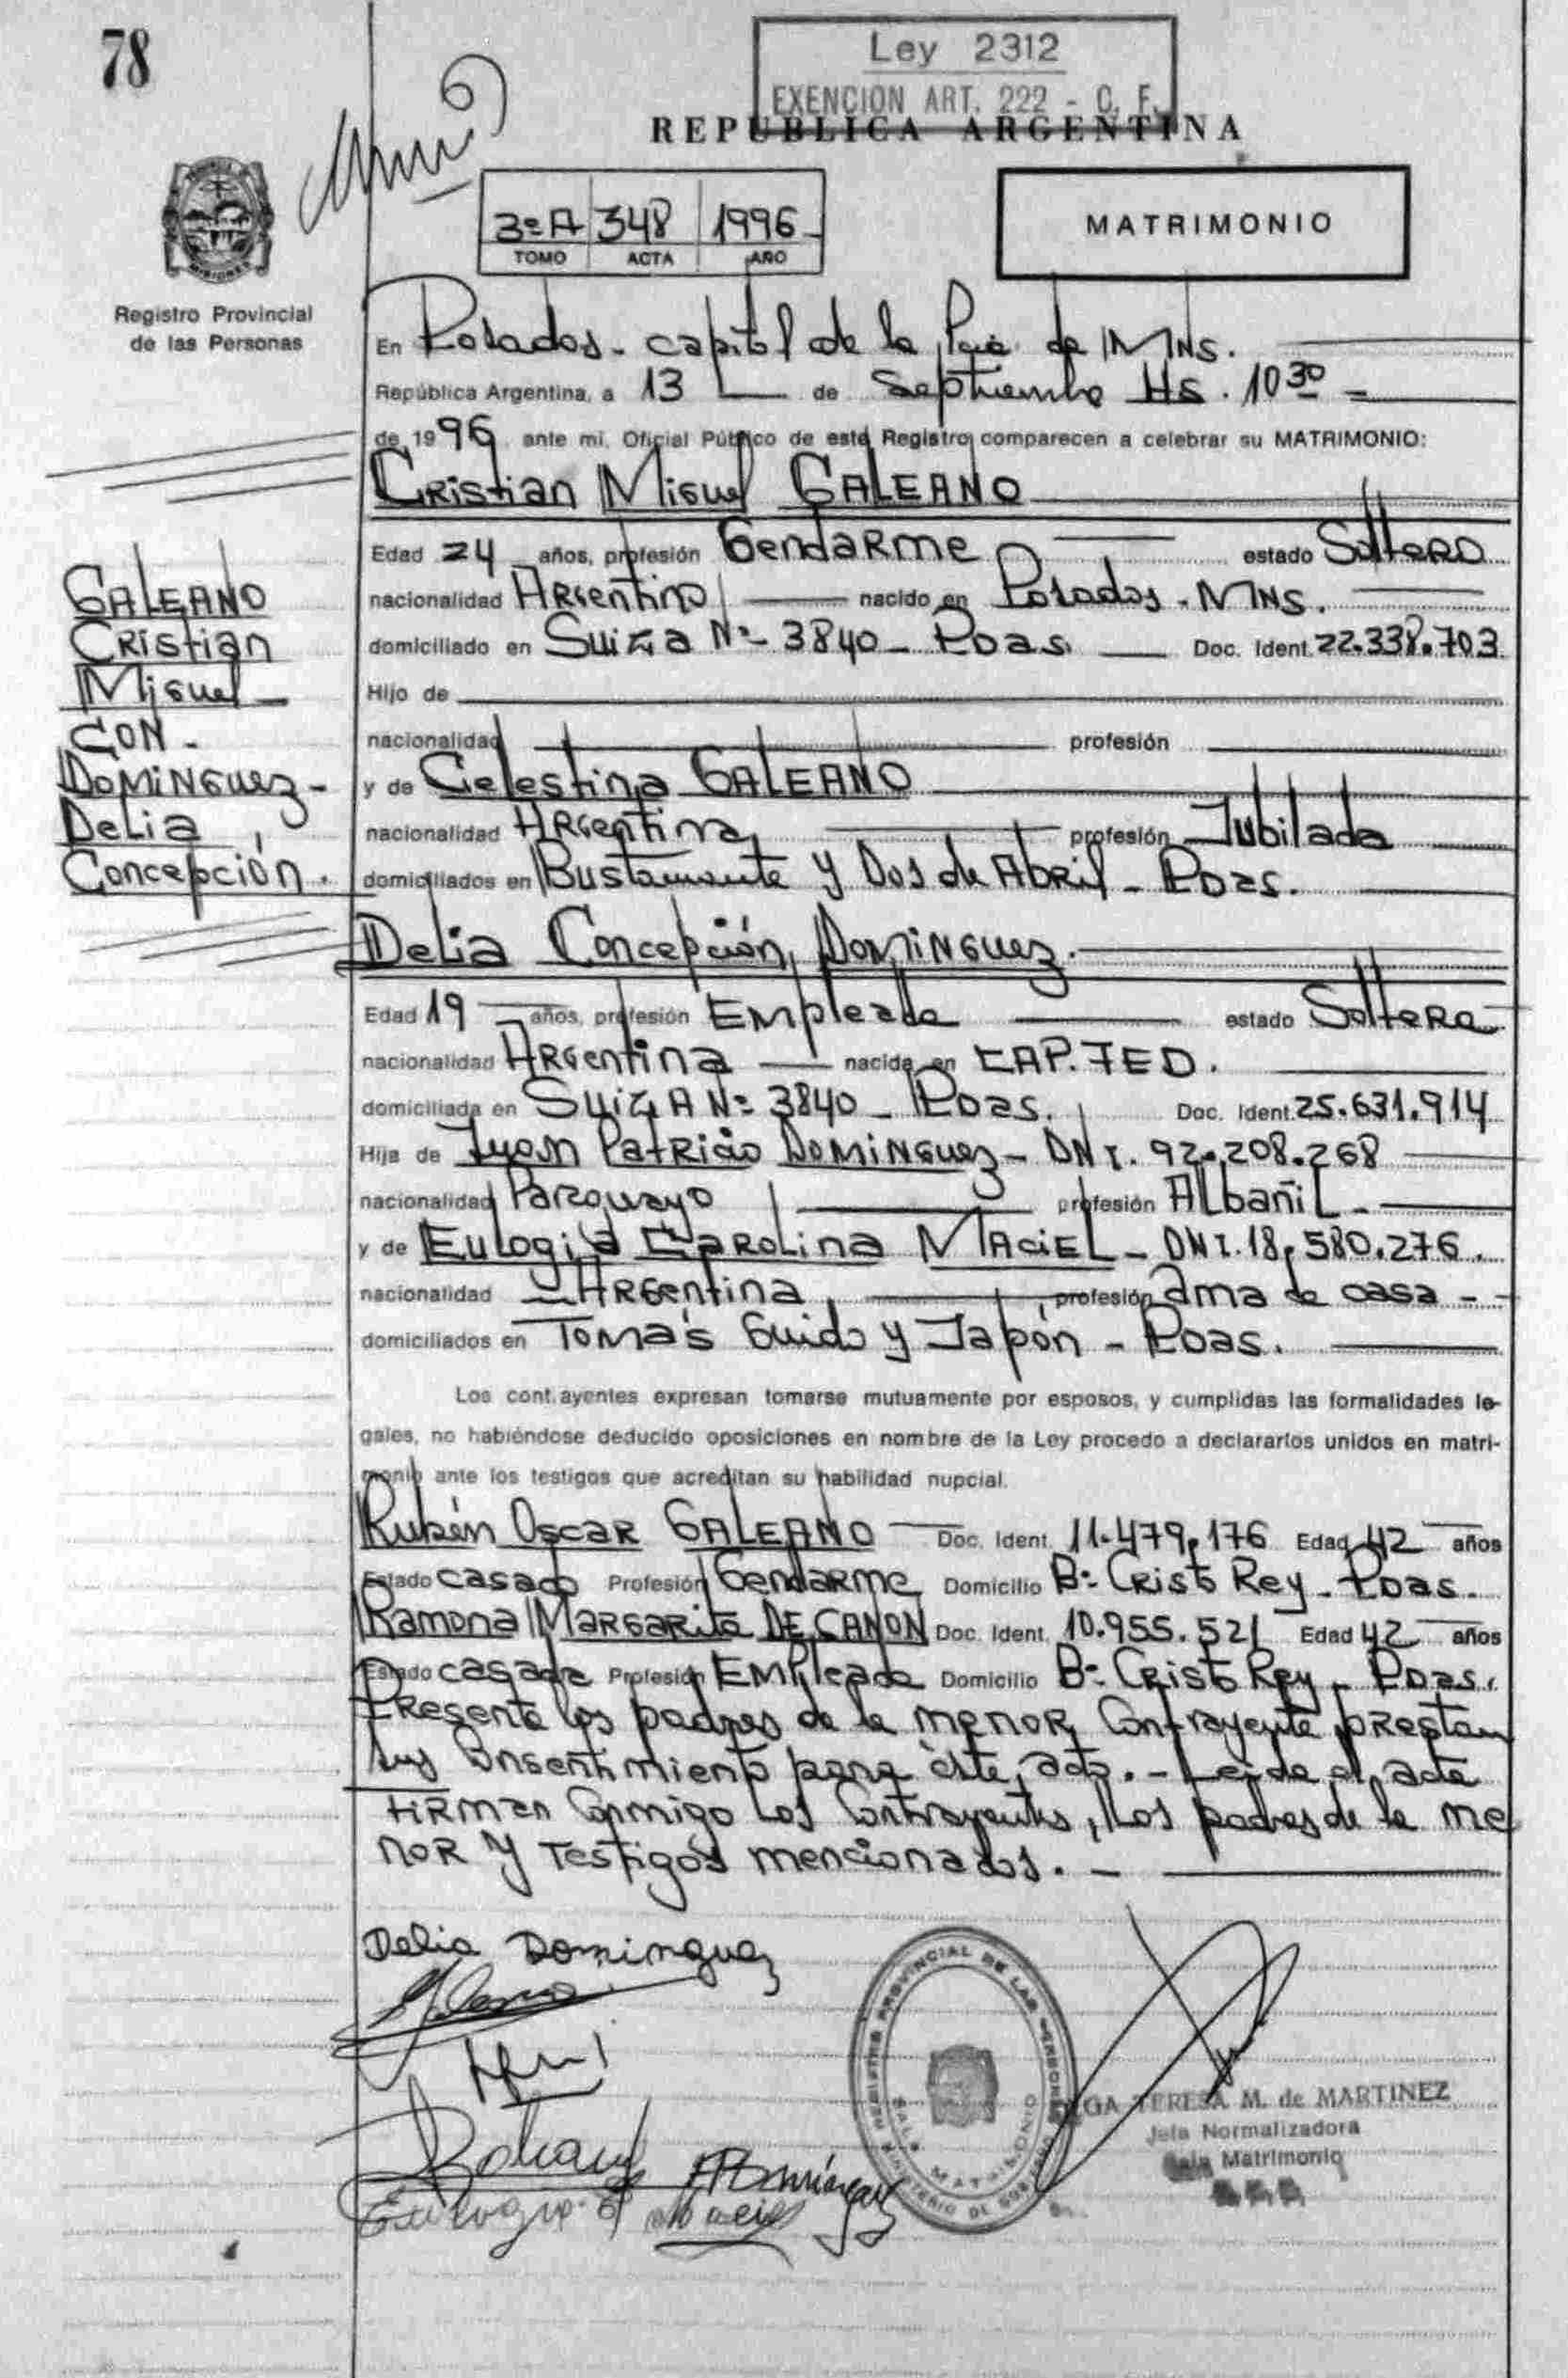 78
Ley 2312
EXENCION ART. 222 - C. F.
REPUBLICA ARGENTINA
3º A 348 1996
TOMO ACTA AÑO
MATRIMONIO
MISIONES
Registro Provincial
de las Personas
En Posadas - capital de la Pcia de MNS.
República Argentina, a 13 de Septiembre Hs. 10 30
de 1996 ante mi, Oficial Público de este Registro comparecen a celebrar su MATRIMONIO:
Cristian Miguel GALEANO
Edad 24 años, profesión Gendarme estado Soltero
nacionalidad Argentino nacido en Posadas - MNS.
domiciliado en Suiza Nº 3840 - Pdas. Doc. Ident. 22.338.703
Hijo de
nacionalidad profesión
y de Celestina GALEANO
nacionalidad Argentina profesión Jubilada
domiciliados en Bustamante y Dos de Abril - Pdas.
GALEANO
Cristian
Miguel
CON -
DOMINGUEZ -
Delia
Concepción.
Delia Concepción DOMINGUEZ.
Edad 19 años, profesión Empleada estado Soltera
nacionalidad Argentina nacida en CAP. FED.
domiciliada en SUIZA Nº 3840 - Pdas. Doc. Ident. 25.631.914
Hija de Juan Patricio DOMINGUEZ - DNI. 92.208.268
nacionalidad Paraguayo profesión Albañil -
y de Eulogia Carolina MACIEL - DNI. 18.580.276.
nacionalidad Argentina profesión ama de casa -
domiciliados en Tomás Guido y Japón - Pdas.
Los cont.ayentes expresan tomarse mutuamente por esposos, y cumplidas las formalidades le-
gales, no habiéndose deducido oposiciones en nombre de la Ley procedo a declararlos unidos en matri-
monio ante los testigos que acreditan su habilidad nupcial.
Rubén Oscar GALEANO Doc. Ident. 11.479.176 Edad 42 años
Estado casado Profesión Gendarme Domicilio Bº Cristo Rey - Pdas.
Ramona Margarita DE CANON Doc. Ident. 10.955.521 Edad 42 años
Estado casada Profesión Empleada Domicilio Bº Cristo Rey - Pdas.
Presente los padres de la menor contrayente prestan
sus consentimiento para éste acto. - Leida el acta
firman conmigo los contrayentes, los padres de la me
nor y testigos mencionados. -
Delia Dominguez
REGISTRO PROVINCIAL DE LAS PERSONAS
SALA MATRIMONIO
MINISTERIO DE GOBIERNO
TERESA M. de MARTINEZ
Jefa Normalizadora
Sala Matrimonio
Eulogia C Maciel